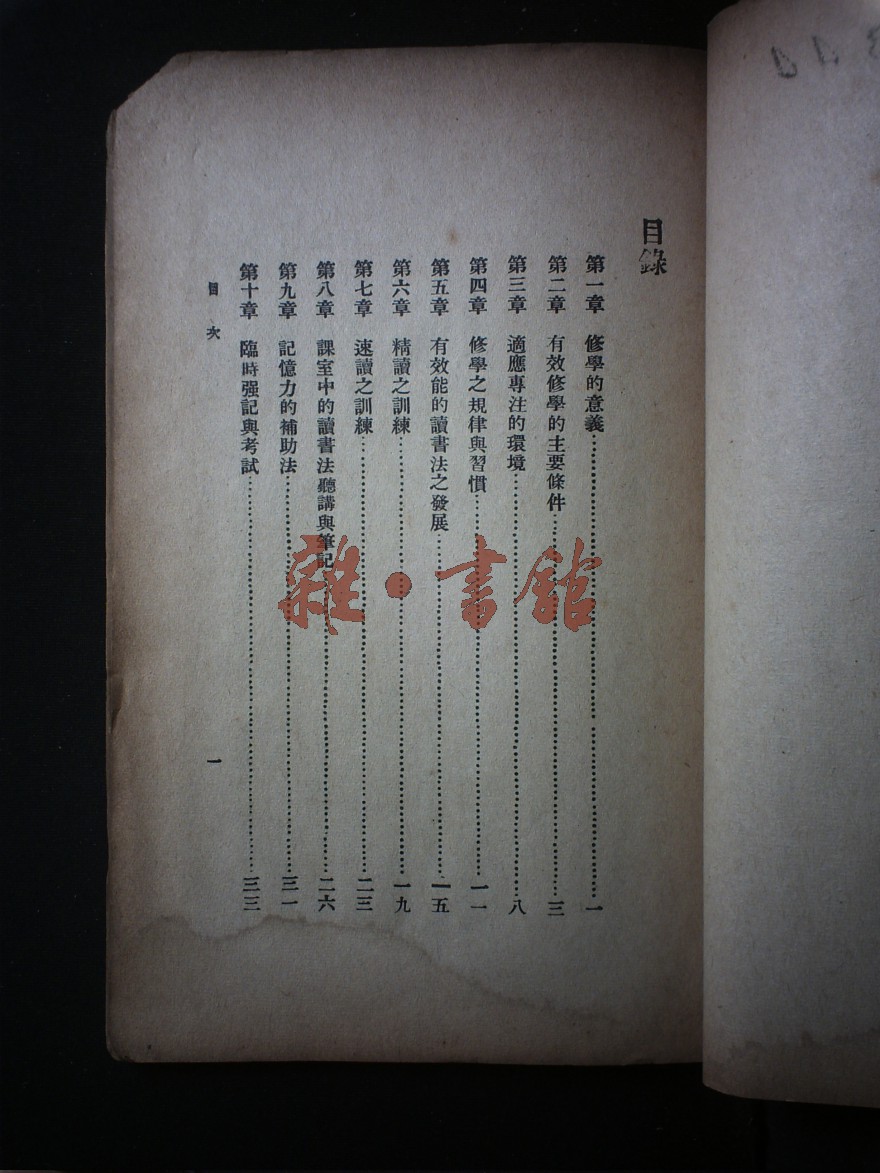 目錄
第一章　修學的意義……一
第二章　有效修學的主要條件……三
第三章　適應專注的環境……八
第四章　修學之規律與習慣……一一
第五章　有效能的讀書法之發展……一五
第六章　精讀之訓練……一九
第七章　速讀之訓練……二三
第八章　課室中的讀書法聽講與筆記……二六
第九章　記憶力的補助法……三一
第十章　臨時强記與考試……三三
目次
一
雜·書館